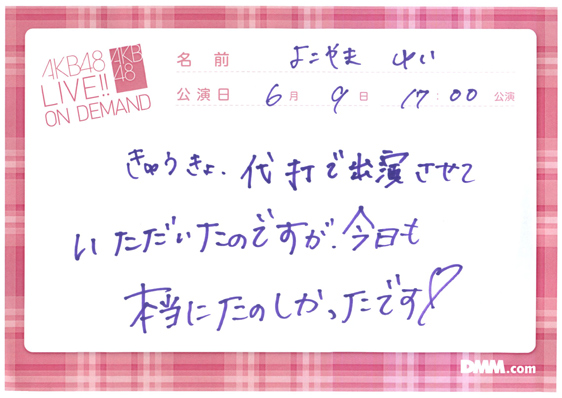 AKB48
LIVE!!
ON DEMAND
AKB
48
名前 よこやま ゆい
公演日 6月 9日 17:00 公演
きゅうきょ、代打で出演させて
いただいたのですが、今日も
本当にたのしかったです♡
DMM.com